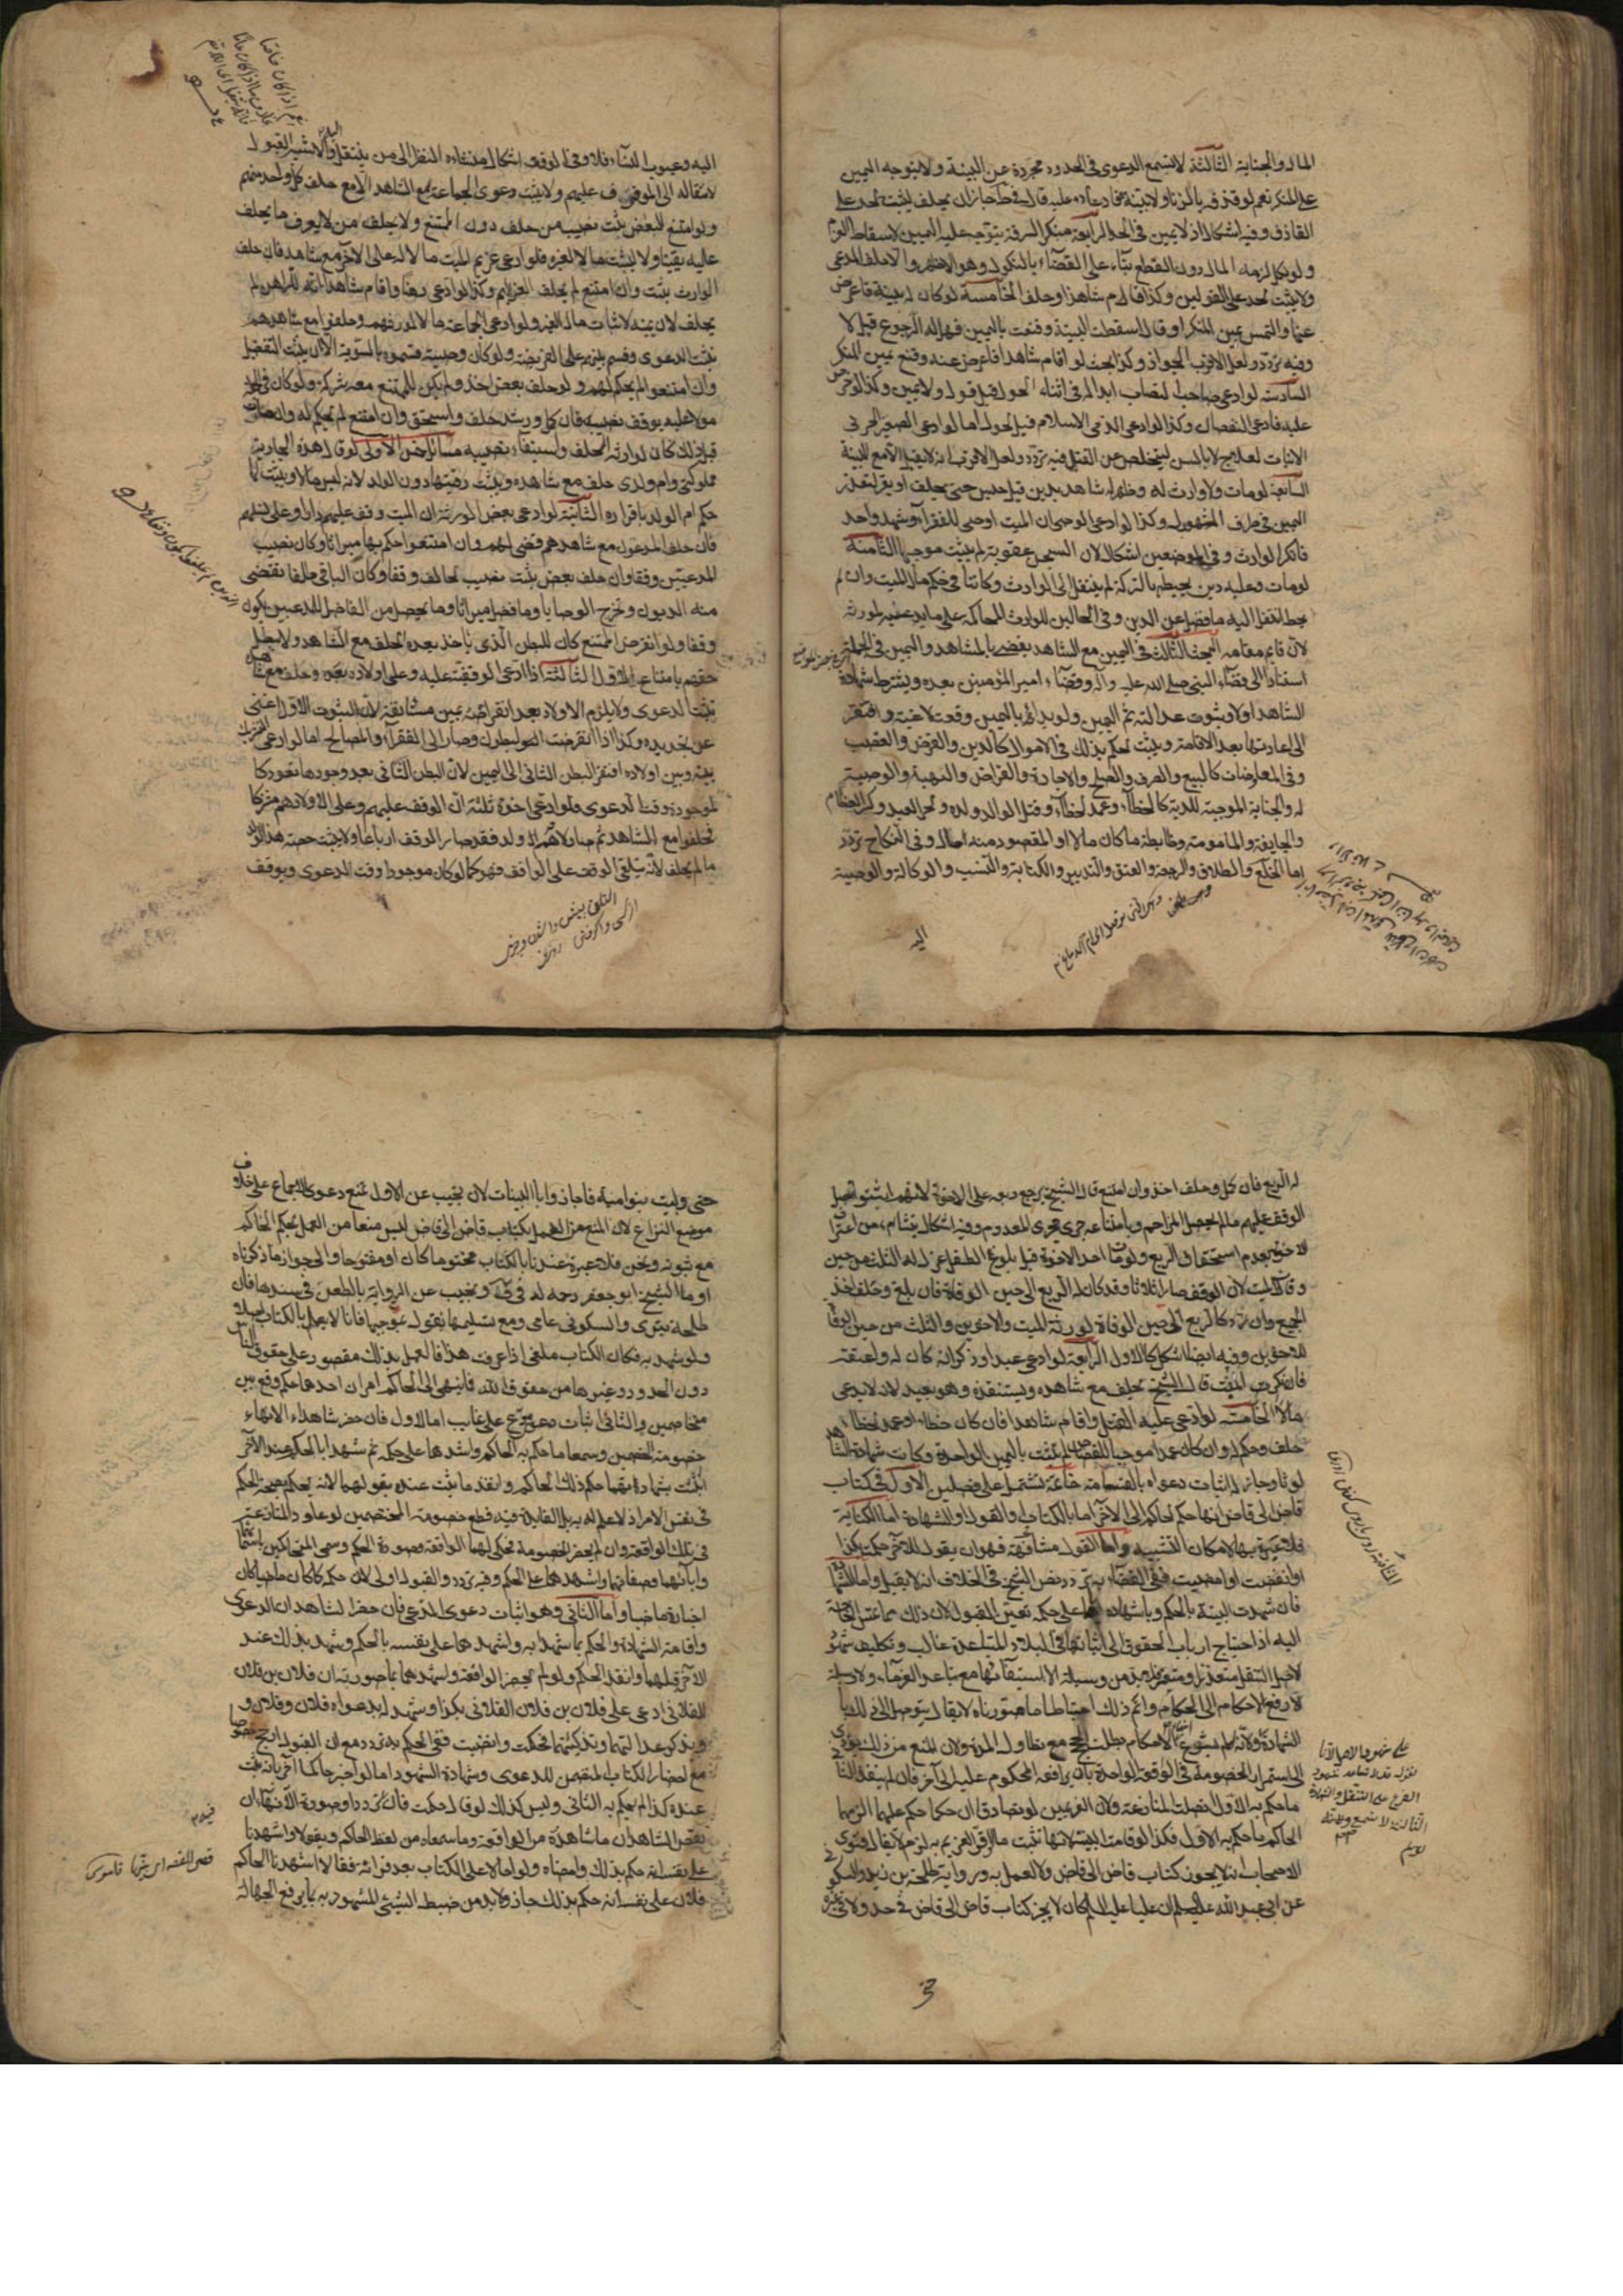 المال والجناية الثالثة لا تسمع الدعوى في الحدود مجردة عن البينة ولا يتوجه اليمين
على المنكر نعم لو قذفه بالزنا ولا بينة فادعاه عليه قال في ط جاز ان يحلف ليثبت الحد على
القاذف وفيه اشكال اذ لا يمين في الحد الرابعة منكر السرقة يتوجه عليه اليمين لاسقاط الغرم
ولو نكل لزمه المال دون القطع بناء على القضاء بالنكول وهو الاظهر والا حلف المدعى
ولا يثبت الحد على القولين وكذا لو اقام شاهدا وحلف الخامسة لو كان له بينة فاعرض
عنها والتمس يمين المنكر او قال اسقطت البينة وقنعت باليمين فهل له الرجوع قيل لا
وفيه تردد ولعل الاقرب الجواز وكذا البحث لو اقام شاهدا فاعرض عنه وقنع بيمين المنكر
السادسة لو ادعى صاحب النصاب ابداله في اثناء الحول قبل قوله ولا يمين وكذا لو خرص
عليه فادعى النقصان وكذا لو ادعى الذمي الاسلام قبل الحول اما لو ادعى الصغير الحربي
الانبات لعلاج لا بالسن ليتخلص عن القتل فيه تردد ولعل الاقرب انه لا يقبل الا مع البينة
السابعة لو مات ولا وارث له وظهر له شاهد بدين قيل حبس حتى يحلف او يقر لتعذر
اليمين في طرف المشهود له وكذا لو ادعى الوصي ان الميت اوصى للفقراء وشهد واحد
فانكر الوارث وفي الموضعين اشكال لان السجن عقوبة لم يثبت موجبها الثامنة
لو مات وعليه دين يحيط بالتركة لم ينتقل الى الوارث وكانت في حكم مال الميت وان لم
يحط انتقل اليه ما فضل عن الدين وفي الحالين للوارث المحاكمة على ما يدعيه لمورثه
لانه قايم مقامه البحث الثالث في اليمين مع الشاهد يقضى بالشاهد واليمين في الجملة
استنادا الى قضاء النبي صلى الله عليه وآله وقضاء امير المؤمنين بعده ويشترط شهادة
الشاهد اولا وثبوت عدالته ثم اليمين ولو بدأ باليمين وقعت لاغية وافتقر
الى اعادتها بعد الاقامة ويثبت الحكم بذلك في الاموال كالدين والقرض والغصب
وفي المعاوضات كالبيع والصرف والصلح والاجارة والقراض والهبة والوصية
له والجناية الموجبة للدية كالخطاء وعمد الخطاء وقتل الوالد ولده والحر العبد وكسر العظام
والجايفة والمامومة وضابطه ما كان مالا او المقصود منه المال وفي النكاح تردد
اما الخلع والطلاق والرجعة والعتق والتدبير والكتابة والنسب والوكالة والوصية
اليه
اليه وعيوب النساء فلا وفي الوقف اشكال منشاءه النظر الى من ينتقل والاشبه القبول
لانتقاله الى الموقوف عليهم ولا يثبت دعوى الجماعة مع الشاهد الا مع حلف كل واحد منهم
ولو امتنع البعض ثبت نصيب من حلف دون الممتنع ولا يحلف من لا يعرف ما يحلف
عليه يقينا ولا ليثبت مالا لغيره فلو ادعى غريم الميت مالا له على الآخر مع شاهد فان حلف
الوارث ثبت وان امتنع لم يحلف الغريم وكذا لو ادعى رهنا واقام شاهدا انه للراهن لم
يحلف لان يمينه لاثبات مال الغير ولو ادعى الجماعة مالا لمورثهم وحلفوا مع شاهدهم
تثبت الدعوى وقسم بينهم على الفريضة ولو كان وصية قسموه بالسوية الا ان يثبت التفضيل
وان امتنعوا لم يحكم لهم ولو حلف بعض اخذ ولم يكن للممتنع معه شركة ولو كان في الجملة
مولا عليه يوقف نصيبه فان كمل ورشد حلف واستحق وان امتنع لم يحكم له وان مات
قبل ذلك كان لوارثه الحلف واستيفاء نصيبه مسائل خمس الاولى لو قال هذه الجارية
مملوكتي وام ولدي حلف مع شاهده ويثبت رقيتها دون الولد لانه ليس مالا ويثبت لها
حكم ام الولد باقراره الثانية لو ادعى بعض الورثة ان الميت وقف عليهم دارا وعلى نسلهم
فان حلف المدعون مع شاهدهم قضى لهم وان امتنعوا حكم بها ميراثا وكان نصيب
المدعيين وقفا وان حلف بعض ثبت نصيب الحالف وقفا وكان الباقي طلقا يقتضى
منه الديون وتخرج الوصايا وما فضل ميراثا وما يحصل من الفاضل للمدعيين يكون
وقفا ولو انقرض الممتنع كان للبطن الذي ياخذ بعده الحلف مع الشاهد ولا يبطل
حقهم بامتناع الاول الثالثة اذا ادعى الوقفية عليه وعلى اولاده بعده وحلف مع شاهده
تثبت الدعوى ولا يلزم الاولاد بعد انقراضه يمين مستانفة لان الثبوت الاول اغنى
عن تجديده وكذا اذا انقرضت البطون وصار الى الفقراء والمصالح اما لو ادعى التشريك
بينه وبين اولاده افتقر البطن الثاني الى اليمين لان البطن الثاني بعد وجودها تعود كا
لموجودة وقت الدعوى فلو ادعى اخوة ثلثة ان الوقف عليهم وعلى اولادهم مشتركا
فحلفوا مع الشاهد ثم صار لاحدهم ولد فقد صار الوقف ارباعا ولا يثبت حصة هذا الولد
ما لم يحلف لانه يتلقى الوقف عن الواقف فهو كما لو كان موجودا وقت الدعوى ويوقف
له الربع فان كمل وحلف اخذ وان امتنع قال الشيخ يرجع ربعه على الاخوة لانهم اثبتوا اصل
الوقف عليهم ما لم يحصل المزاحم وبامتناعه جرى مجرى المعدوم وفيه اشكال ينشاء من اعتراف
الاخوة بعدم استحقاق الربع ولو مات احد الاخوة قبل بلوغ الطفل عزل له الثلث من حين
وفاة الميت لان الوقف صار اثلاثا وقد كان له الربع الى حين الوفاة فان بلغ وحلف اخذ
الجميع وان رد كان الربع الى حين الوفاة لورثة الميت والاخوين والثلث من حين الوفاة
للاخوين وفيه ايضا اشكال كالاول الرابعة لو ادعى عبدا وذكر انه كان له واعتقه
فانكر المتشبث قال الشيخ يحلف مع شاهده ويستنقذه وهو بعيد لانه لا يدعى
مالا الخامسة لو ادعى عليه القتل واقام شاهدا فان كان خطاء او عمد الخطاء
حلف وحكم له وان كان عمدا موجبا للقصاص لم يثبت باليمين الواحدة وكانت شهادة الشاهد
لوثا وجاز له اثبات دعواه بالقسامة خاتمة تشتمل على فصلين الاول في كتاب
قاض الى قاض انهاء حكم الحاكم الى الآخر اما بالكتابة او القول او الشهادة اما الكتابة
فلا عبرة بها لامكان التشبيه واما القول مشافهة فهو ان يقول للآخر حكمت بكذا
او انفذت او امضيت ففي القضاء به تردد نص الشيخ في الخلاف انه لا يقبل واما الشهادة
فان شهدت البينة بالحكم وباشهاده اياهما على حكمه تعين القبول لان ذلك مما تمس الحاجة
اليه اذ احتياج ارباب الحقوق الى اثباتها في البلاد المتباعدة غالب وتكليف شهود
الاصل التنقل متعذر او متعسر فلا بد من وسيلة الى استيفائها مع تباعد الغرماء ولا وسيلة
الا رفع الاحكام الى الحكام واتم ذلك احتياطا ما صورناه لا يقال يتوصل الى ذلك با
لشهادة ولانه لو لم يشرع انهاء الاحكام بطلت الحجج مع تطاول المدة ولان المنع من ذلك يؤدي
الى استمرار الخصومة في الواقعة الواحدة بان يرافعه المحكوم عليه الى آخر فان لم ينفذ الثاني
ما حكم به الاول اتصلت المنازعة ولان الغريمين لو تصادقا ان حاكما حكم عليهما الزمهما
الحاكم ما حكم به الاول فكذا لو قامت البينة لانها تثبت ما لو اقر الغريم به لزم لا يقال فتوى
الاصحاب انه لا يجوز كتاب قاض الى قاض ولا العمل به ورواية طلحة بن زيد والسكوني
عن ابي عبد الله عليه السلم ان عليا عليه السلم كان لا يجيز كتاب قاض الى قاض في حد ولا غيره
حتى وليت بنو امية فاجازوا بالبينات لان نجيب عن الاول نمنع دعوى الاجماع على خلاف
موضع النزاع لان المنع من العمل بكتاب قاض الى قاض ليس منعا من العمل بحكم الحاكم
مع ثبوته ونحن فلا عبرة عندنا بالكتاب مختوما كان او مفتوحا والى جواز ما ذكرناه
اوما الشيخ ابو جعفر رحمه الله في ف ونجيب عن الرواية بالطعن في سندها فان
طلحة بتري والسكوني عامي ومع تسليمها نقول بموجبها فانا لا نعمل بالكتاب اصلا
ولو شهد به فكان الكتاب ملغى اذا عرفت هذا فالعمل بذلك مقصور على حقوق الناس
دون الحدود وغيرها من حقوق الله فاينهى الى الحاكم امران احدهما حكم وقع بين
متخاصمين والثاني اثبات دعوى مدع على غايب اما الاول فان حضر شاهدا الانهاء
خصومة الخصمين وسمعا ما حكم به الحاكم واشهدهما على حكمه ثم شهدا بالحكم عند الآخر
اثبت بشهادتهما حكم ذلك الحاكم وانفذ ما ثبت عنده بقولهما لانه يحكم بصحة الحكم
في نفس الامر اذ لا علم له به بل الفايدة فيه قطع خصومة المختصمين لو عاودا المنازعة
في تلك الواقعة وان لم يحضر الخصومة فحكى لهما الواقعة وصورة الحكم وسمى المتحاكمين باسمائهما
وابائهما وصفاتهما واشهدهما على الحكم وفيه تردد والقبول اولى لان حكمه كما كان ماضيا كان
اخباره ماضيا واما الثاني وهو اثبات دعوى المدعى فان حضر الشاهدان الدعوى
واقامة الشهادة والحكم بما شهدا به واشهدهما على نفسه بالحكم وشهد بذلك عند
الآخر قبلهما وانفذ الحكم ولو لم يحضر الواقعة واشهدهما بما صورته ان فلان بن فلان
الفلاني ادعى على فلان بن فلان الفلاني بكذا وشهد له بدعواه فلان وفلان و
ويذكر عدالتهما وتزكيتهما فحكمت وامضيت ففي الحكم به تردد مع ان القبول ارجح خصوصا
مع احضار الكتاب المتضمن للدعوى وشهادة الشهود اما لو اخبر حاكما اخر بانه ثبت
عنده كذا لم يحكم به الثاني وليس كذلك لو قال حكمت فان فيه ترددا وصورة الانهاء ان
يقص الشاهدان ما شاهداه من الواقعة وما سمعاه من لفظ الحاكم ويقولا واشهدنا
على نفسه انه حكم بذلك وامضاه ولو احالا على الكتاب بعد قرائته فقالا اشهدنا الحاكم
فلان على نفسه انه حكم بذلك جاز ولا بد من ضبط الشئ المشهود به بما يرفع الجهالة